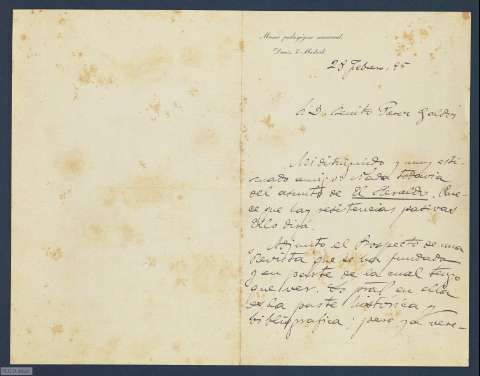 Museo pedagógico nacional,
Daoiz, 7. Madrid.
28 Febrero, 95
S. D. Benito Perez Galdós
Mi distinguido y muy esti-
mado amigo: Nada todavia
del asunto de El Heraldo. Pare-
ce que hay resistencias pasivas
Ello dirá.
Adjunto el Prospecto de una
Revista que se ha fundado
y en parte de la cual tengo
que ver. Lo pral. en ella
es la parte historica y
bibliografica; pero ya vere-